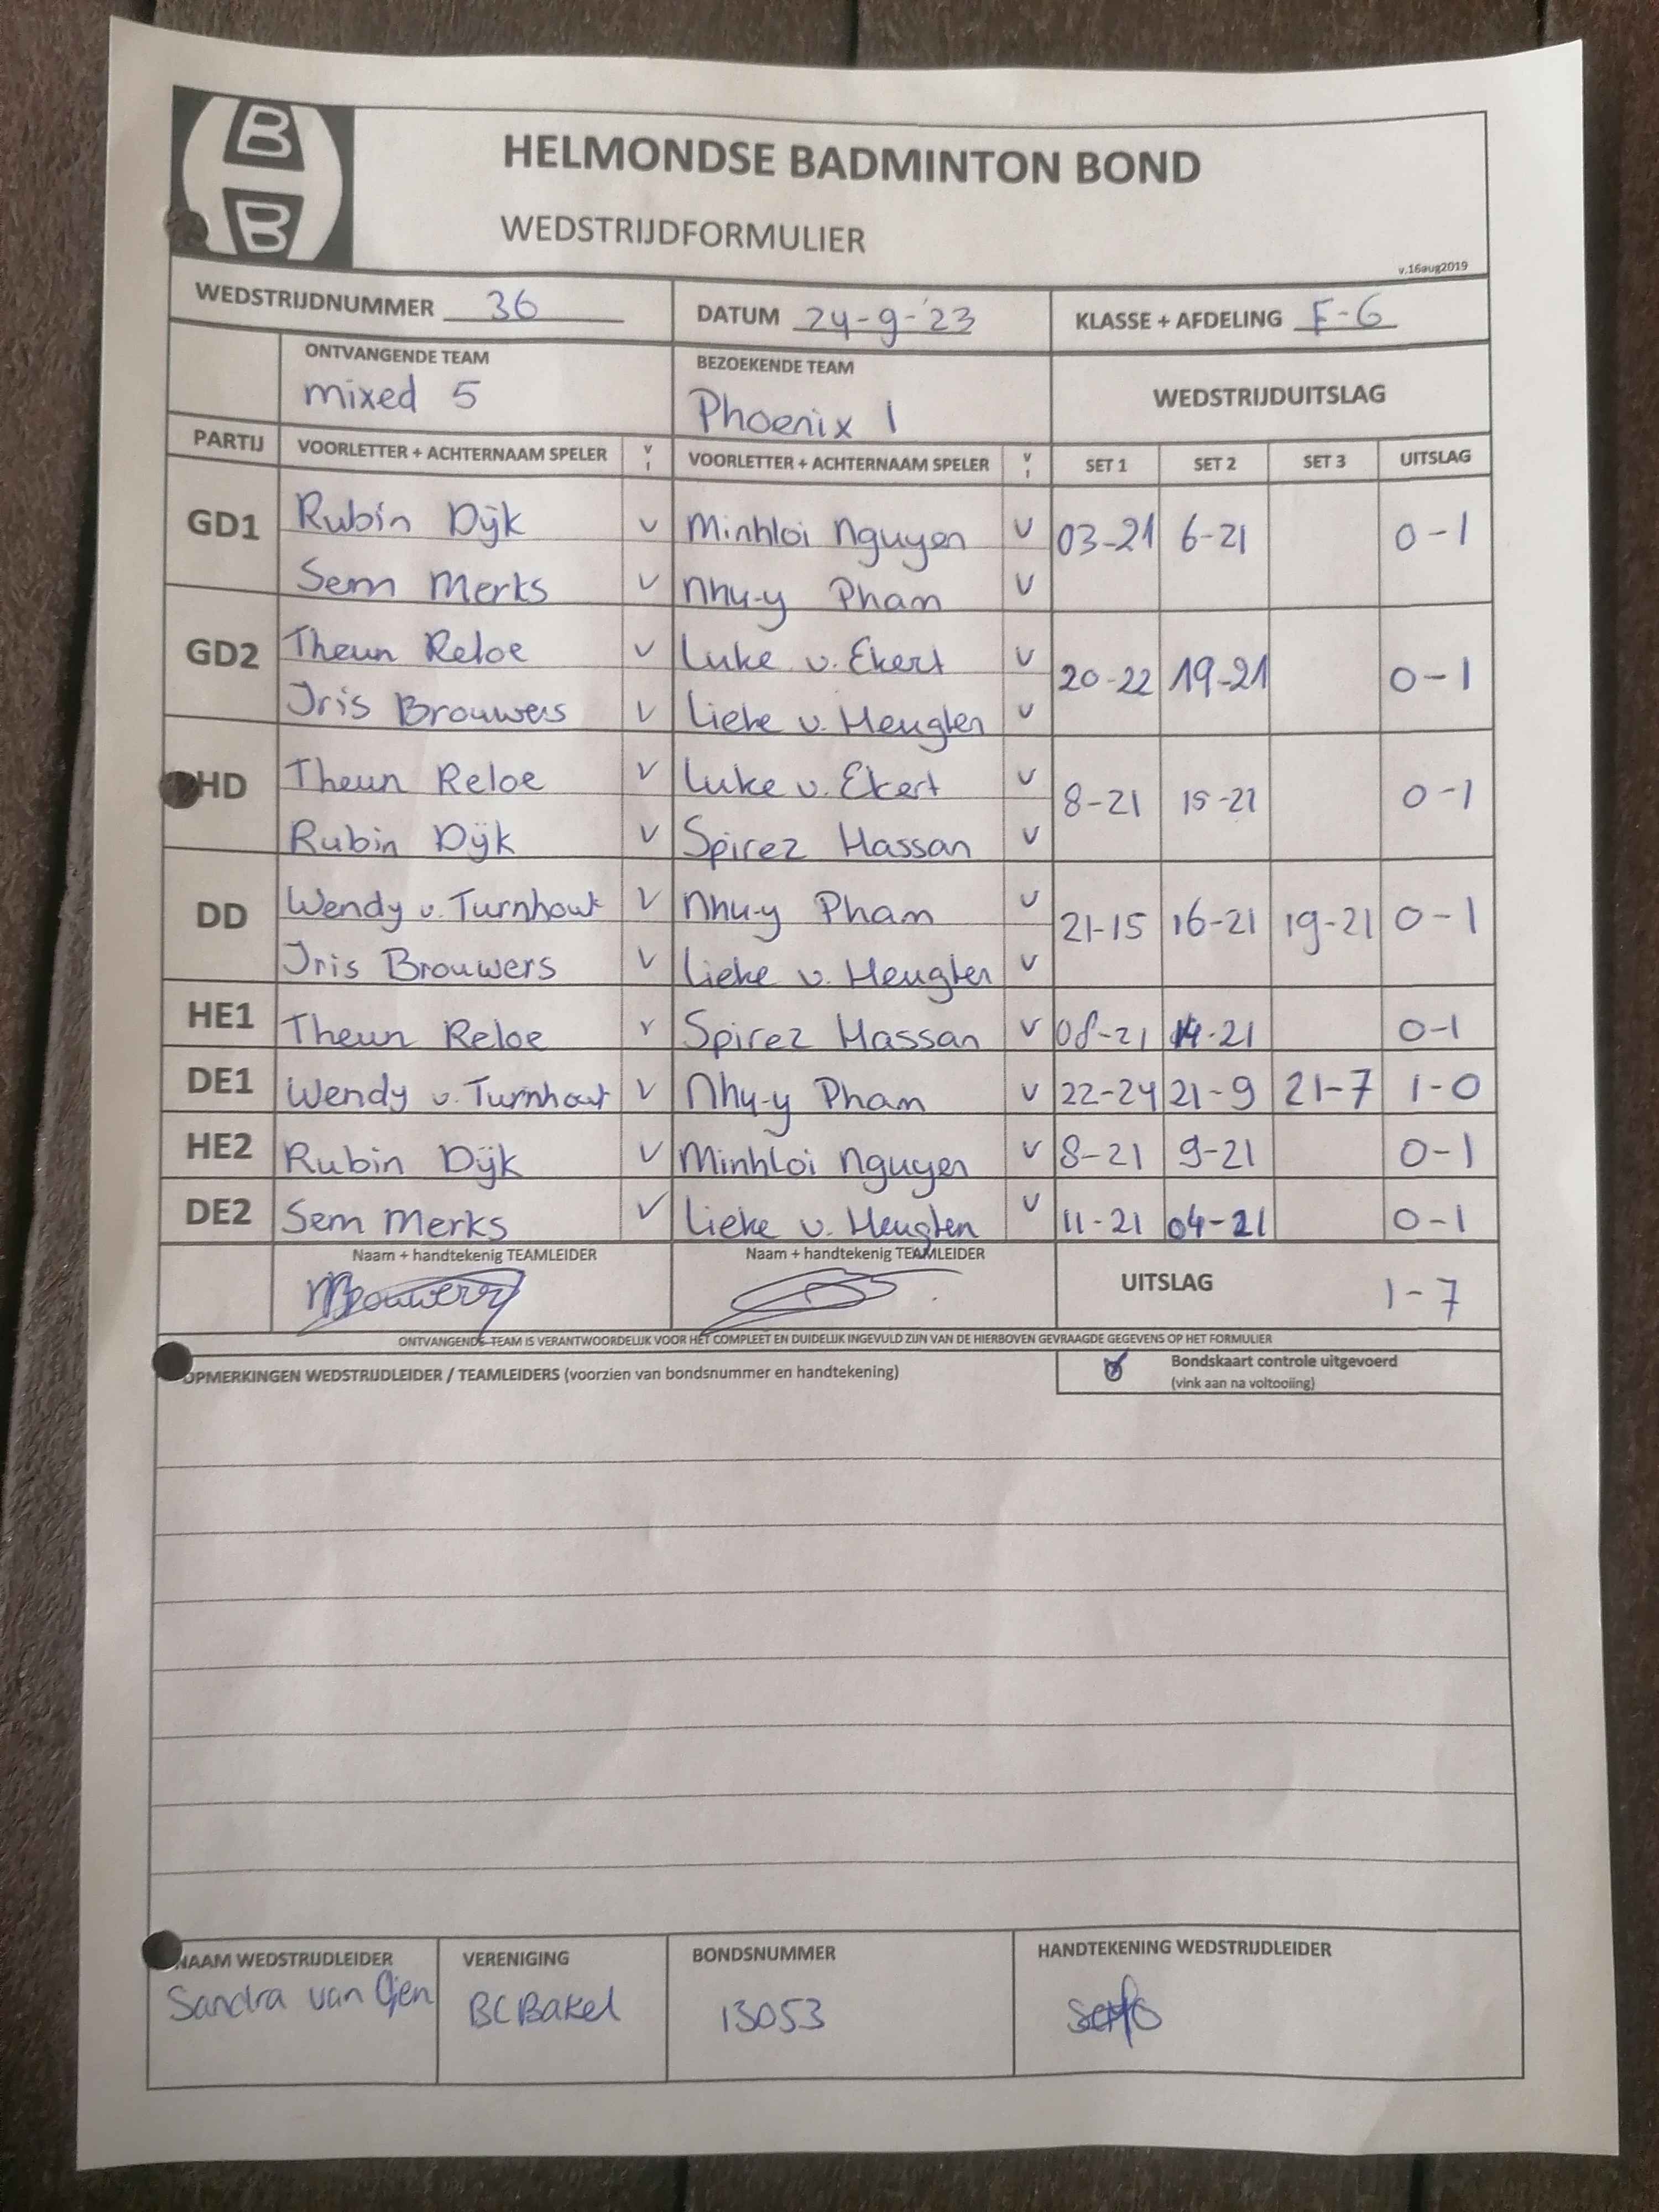 B
B
HELMONDSE BADMINTON BOND
WEDSTRIJDFORMULIER
v.16aug2019
WEDSTRIJDNUMMER 36 DATUM 24-9-'23 KLASSE + AFDELING F-G
ONTVANGENDE TEAM BEZOEKENDE TEAM WEDSTRIJDUITSLAG
mixed 5 Phoenix 1
PARTIJ VOORLETTER + ACHTERNAAM SPELER V I VOORLETTER + ACHTERNAAM SPELER V I SET 1 SET 2 SET 3 UITSLAG
GD1 Rubin Dijk v Minhloi Nguyen v 03-21 6-21 0-1
Sem Merks v Nhu-y Pham v
GD2 Theun Reloe v Luke v. Ekert v 20-22 19-21 0-1
Iris Brouwers v Lieke v. Heugten v
HD Theun Reloe v Luke v. Ekert v 8-21 15-21 0-1
Rubin Dijk v Spirez Hassan v
DD Wendy v. Turnhout v Nhu-y Pham v 21-15 16-21 19-21 0-1
Iris Brouwers v Lieke v. Heugten v
HE1 Theun Reloe v Spirez Hassan v 08-21 14-21 0-1
DE1 Wendy v. Turnhout v Nhu-y Pham v 22-24 21-9 21-7 1-0
HE2 Rubin Dijk v Minhloi Nguyen v 8-21 9-21 0-1
DE2 Sem Merks v Lieke v. Heugten v 11-21 04-21 0-1
Naam + handtekenig TEAMLEIDER Naam + handtekenig TEAMLEIDER UITSLAG 1-7
ONTVANGENDE TEAM IS VERANTWOORDELIJK VOOR HET COMPLEET EN DUIDELIJK INGEVULD ZIJN VAN DE HIERBOVEN GEVRAAGDE GEGEVENS OP HET FORMULIER
OPMERKINGEN WEDSTRIJDLEIDER / TEAMLEIDERS (voorzien van bondsnummer en handtekening) Bondskaart controle uitgevoerd
(vink aan na voltooiing)
NAAM WEDSTRIJDLEIDER VERENIGING BONDSNUMMER HANDTEKENING WEDSTRIJDLEIDER
Sandra van BC Bakel 13053